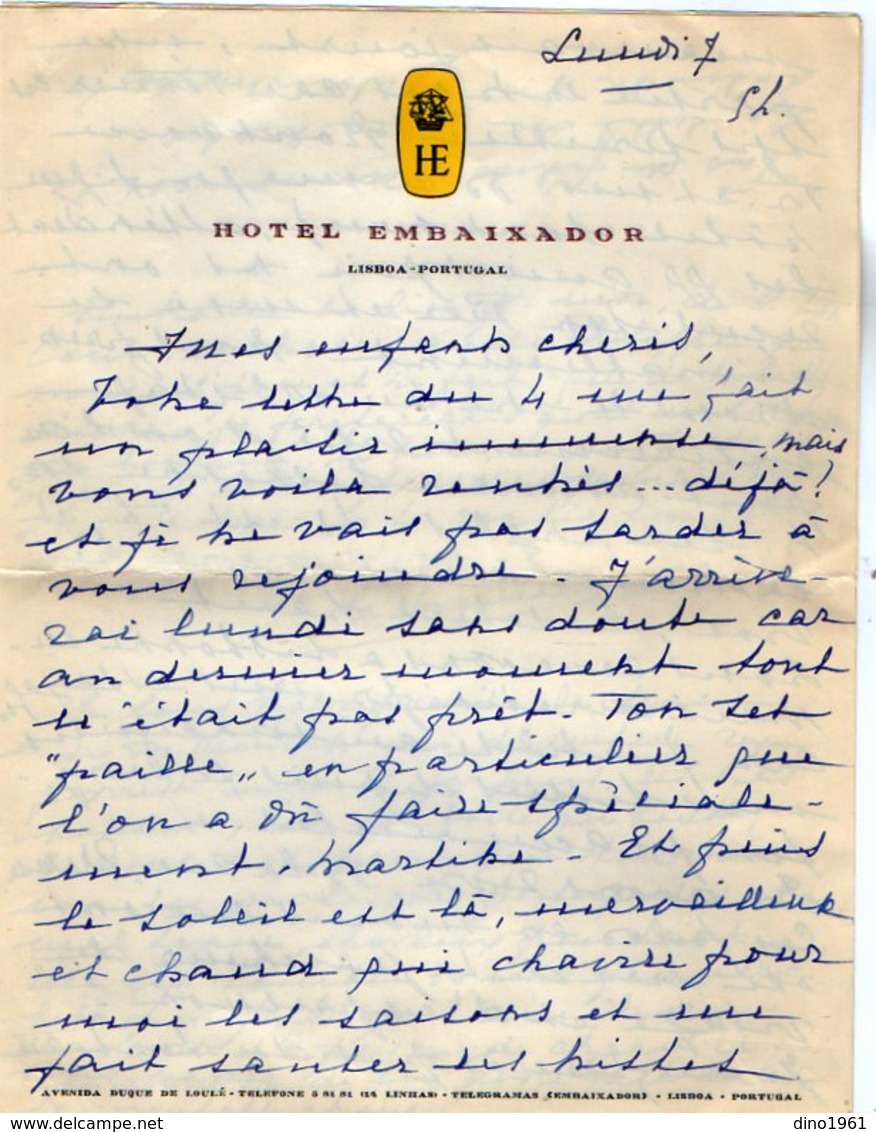 Lundi 7
5h.
HE
HOTEL EMBAIXADOR
LISBOA - PORTUGAL
Mes enfants chéris,
Votre lettre du 4 me fait
un plaisir immense, mais
vous voilà rentrés... déjà!
et je ne vais pas tarder à
vous rejoindre. J'arrive-
rai lundi sans doute car
au dernier moment tout
n'était pas prêt. Ton set
"paille" en particulier que
l'on a dû faire spéciale-
ment, Martine. Et puis
le soleil est là, merveilleux
et chaud qui chavire pour
moi les saisons et me
fait sauter les tristes
AVENIDA DUQUE DE LOULÉ - TELEFONE 5 81 81 (14 LINHAS) - TELEGRAMAS (EMBAIXADOR) - LISBOA - PORTUGAL
dino1961